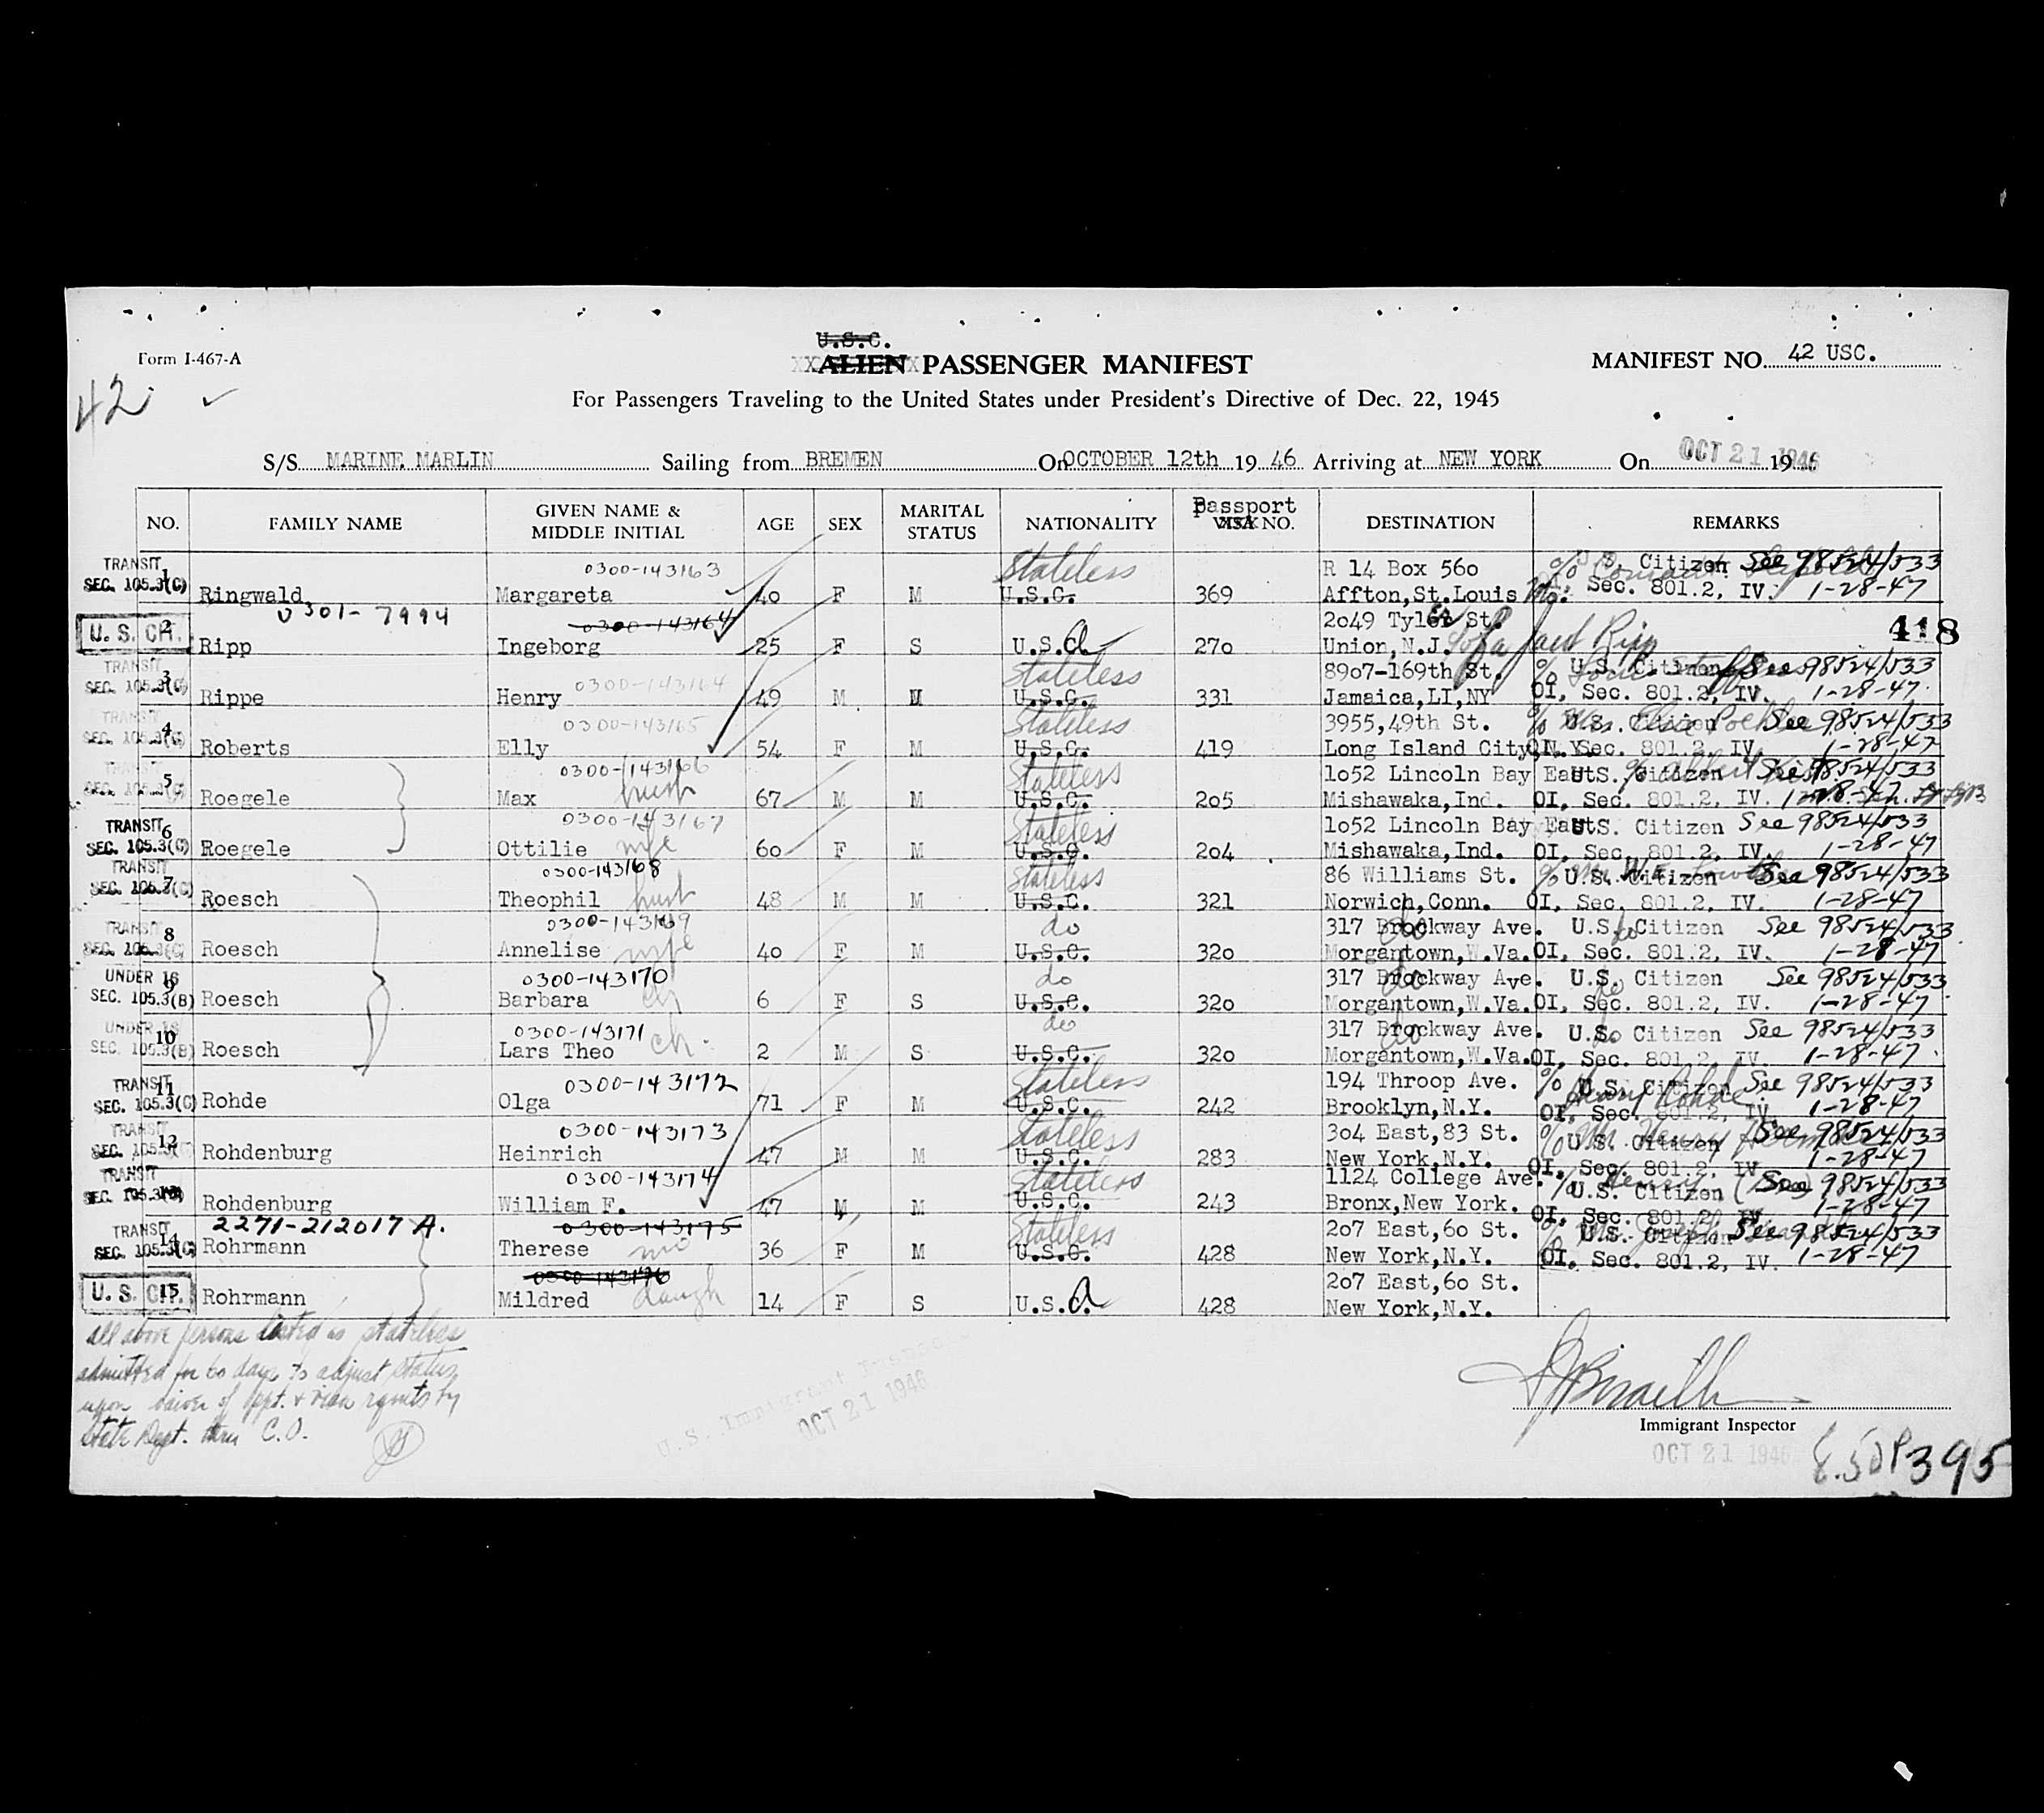 Form I-467-A
U.S.C.
ALIEN PASSENGER MANIFEST
MANIFEST NO. 42 USC.
42
For Passengers Traveling to the United States under President's Directive of Dec. 22, 1945
S/S MARINE MARLIN Sailing from BREMEN On OCTOBER 12th 19 46 Arriving at NEW YORK On OCT 21 1946
NO. FAMILY NAME GIVEN NAME & MIDDLE INITIAL AGE SEX MARITAL STATUS NATIONALITY Passport VISA NO. DESTINATION REMARKS
TRANSIT 0300-143163 Stateless R 14 Box 560 % U.S. Citizen See 98524/533
SEC. 105.3(C) 1 Ringwald Margareta 40 F M U.S.C. 369 Affton,St.Louis Mo. Sec. 801.2, IV. 1-28-47
0301-7994 0300-143164 2049 Tyler St. 418
U. S. CIT. 2 Ripp Ingeborg 25 F S U.S.C. 270 Union,N.J.
TRANSIT 0300-143164 Stateless 8907-169th St. % U.S. Citizen See 98524/533
SEC. 105.3(C) 3 Rippe Henry 49 M M U.S.C. 331 Jamaica,LI,NY OI, Sec. 801.2, IV. 1-28-47
TRANSIT 0300-143165 Stateless 3955,49th St. % Mrs. Elsie U.S. Citizen See 98524/533
SEC. 105.3(C) 4 Roberts Elly 54 F M U.S.C. 419 Long Island City,N.Y. OI, Sec. 801.2, IV. 1-28-47
TRANSIT 0300-143166 Stateless 1052 Lincoln Bay East U.S. Citizen % Albert See 98524/533
SEC. 105.3(C) 5 Roegele Max husb 67 M M U.S.C. 205 Mishawaka,Ind. OI, Sec. 801.2, IV. 1-28-47
TRANSIT 0300-143167 Stateless 1052 Lincoln Bay East U.S. Citizen See 98524/533
SEC. 105.3(C) 6 Roegele Ottilie wife 60 F M U.S.C. 204 Mishawaka,Ind. OI, Sec. 801.2, IV. 1-28-47
TRANSIT 0300-143168 Stateless 86 Williams St. % U.S. Citizen See 98524/533
SEC. 105.3(C) 7 Roesch Theophil husb 48 M M U.S.C. 321 Norwich,Conn. OI, Sec. 801.2, IV. 1-28-47
TRANSIT 0300-143169 do 317 Brockway Ave. do U.S. Citizen do See 98524/533
SEC. 105.3(C) 8 Roesch Annelise wife 40 F M U.S.C. 320 Morgantown,W.Va. OI, Sec. 801.2, IV. 1-28-47
UNDER 16 0300-143170 do 317 Brockway Ave. do U.S. Citizen See 98524/533
SEC. 105.3(B) 9 Roesch Barbara ch 6 F S U.S.C. 320 Morgantown,W.Va. OI, Sec. 801.2, IV. do 1-28-47
UNDER 16 0300-143171 do 317 Brockway Ave. do U.S. Citizen do See 98524/533
SEC. 105.3(B) 10 Roesch Lars Theo ch. 2 M S U.S.C. 320 Morgantown,W.Va. OI, Sec. 801.2, IV. 1-28-47
TRANSIT 0300-143172 Stateless 194 Throop Ave. % U.S. Citizen See 98524/533
SEC. 105.3(C) 11 Rohde Olga 71 F M U.S.C. 242 Brooklyn,N.Y. Henry Rohde OI, Sec. 801.2, IV. 1-28-47
TRANSIT 0300-143173 Stateless 304 East,83 St. % Mr. Henry U.S. Citizen See 98524/533
SEC. 105.3(C) 12 Rohdenburg Heinrich 47 M M U.S.C. 283 New York,N.Y. OI, Sec. 801.2, IV. 1-28-47
TRANSIT 0300-143174 Stateless 1124 College Ave. % Henry U.S. Citizen See 98524/533
SEC. 105.3(C) 13 Rohdenburg William F. 47 M M U.S.C. 243 Bronx,New York. OI, Sec. 801.2, IV. 1-28-47
TRANSIT 2271-212017 A. 0300-143175 Stateless 207 East,60 St. % U.S. Citizen See 98524/533
SEC. 105.3(C) 14 Rohrmann Therese mo 36 F M U.S.C. 428 New York,N.Y. OI, Sec. 801.2, IV. 1-28-47
0300-143176 207 East,60 St.
U. S. CIT. 15 Rohrmann Mildred daugh 14 F S U.S.C. 428 New York,N.Y.
all above persons listed as stateless
admitted for 60 days to adjust status
upon waiver of ppt. & visa rqmts by
State Dept. thru C.O.
U.S. Immigrant
OCT 21 1946
Immigrant Inspector
OCT 21 1946
395